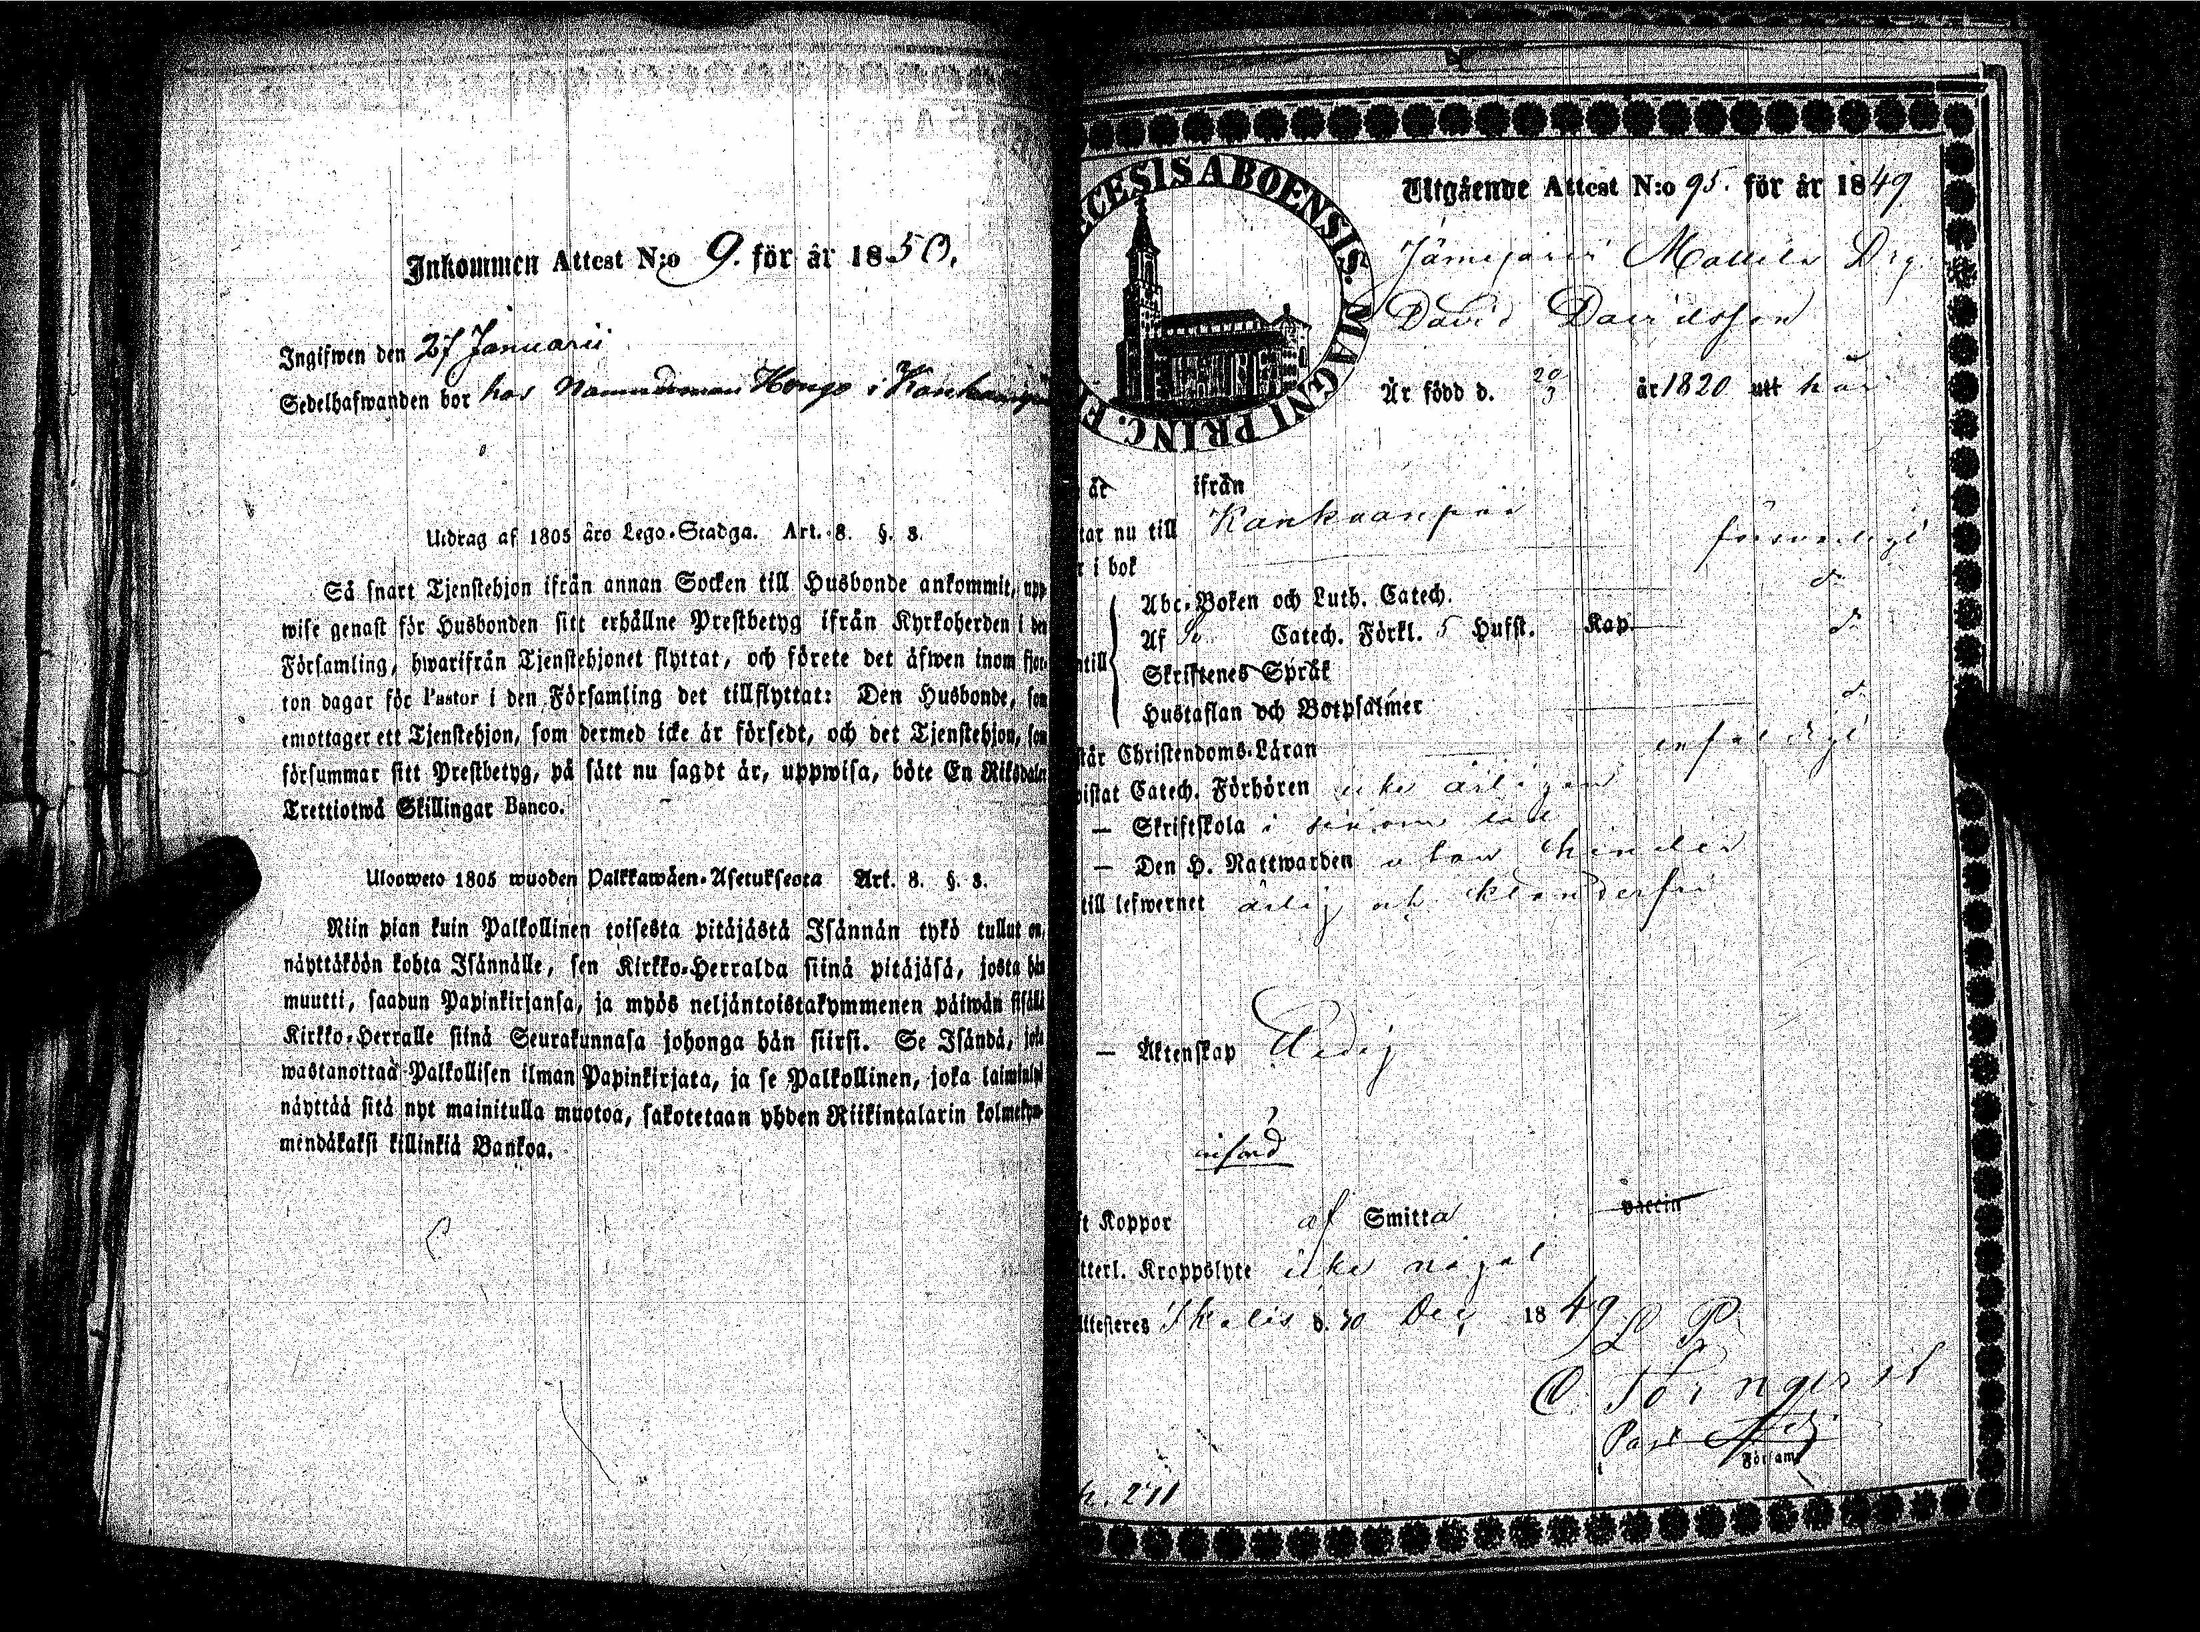 Inkommen Attest N:o 9. för år 1850.
Ingifwen den 27 Januarii
Sedelhafwanden bor hos Nämndeman Hongo i Kankanpää
Utdrag af 1805 års Lego-Stadga. Art. 8. §. 8.
Så snart Tjenstehjon ifrån annan Socken till Husbonde ankommit, upp-
wise genast för Husbonden sitt erhållne Prestbetyg ifrån Kyrkoherden i den
Församling, hwarifrån Tjenstehjonet flyttat, och förete det äfwen inom fjor-
ton dagar för Pastor i den Församling det tillflyttat: Den Husbonde, som
emottager ett Tjenstehjon, som dermed icke är försedt, och det Tjenstehjon, som
försummar sitt Prestbetyg, på sätt nu sagdt är, uppwisa, böte En Riksdaler
Trettiotwå Skillingar Banco.
Uloswеto 1805 wuoden Palkkawäen-Asetuksesta Art. 8. §. 8.
Niin pian kuin Palkollinen toisesta pitäjästä Isännän tykö tullut on,
näyttäköön kohta Isännälle, sen Kirkko-Herralda siinä pitäjäsä, josta hän
muutti, saadun Papinkirjansa, ja myös neljäntoistakymmenen päiwän sisällä
Kirkko-Herralle siinä Seurakunnasa johonga hän siirsi. Se Isändä, joka
wastanottaa Palkollisen ilman Papinkirjata, ja se Palkollinen, joka laiminlyö
näyttää sitä nyt mainitulla muotoa, sakotetaan yhden Riikintalarin kolmekym-
mendäkaksi killinkiä Bankoa.
ECESIS ABOENSIS. MAGNI PRINC. F
Utgående Attest N:o 95. för år 1849
Jämijärvi Mattila Drg
David Davidsson
Är född d. 20/3 år 1820 att här
är ifrån
tar nu till Kankaanpää
r i bok försvarligt
Abc-Boken och Luth. Catech. d:o
Af Sv. Catech. Förkl. 5 Hufst. Kap. d:o
ntill Skriftenes Språk
Hustaflan och Botpsalmer d:o
står Christendoms-Läran enfaldigt
istat Catech. Förhören icke årligen
— Skriftskola i sinom tid
— Den H. Nattwarden utan hinder
till lefwernet ärlig och klanderfri
— Äktenskap Ledig
införd
ft Koppor af Smitta vaccin
tterl. Kroppslyte icke något
ttesteres Ikalis d. 30 Dec. 1849
L P
C. Törnqvist
Past Adj.
Församl
p. 211